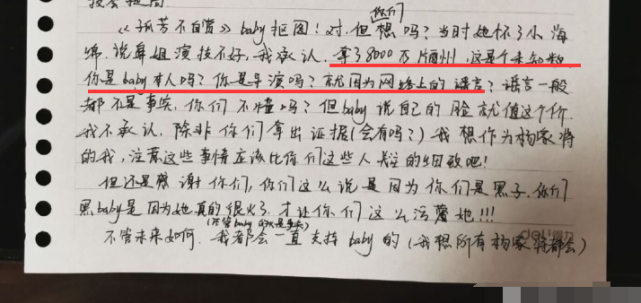 《孤芳不自赏》baby抠图!对,但你们想吗?当时她怀了小海
绵.说弄姐演技不好,我承认.拿了8000万片酬,这是个未知数
你是baby本人吗?你是导演吗?就因为网络上的谣言?谣言一般
都不是事实,你们不懂吗?但baby说自己的脸就值这个价
我不承认,除非你们拿出证据(会有吗?)我想作为杨家将
的我,注意这些事情应该比你们这些人关注的细致吧!
但还是感谢你们,你们这么说是因为你们是黑子.你们
黑baby是因为她真的很火了,才让你们这么污蔑她!!!
不管未来如何.我都会一直支持baby的(我想所有杨家将都会)
deli得力